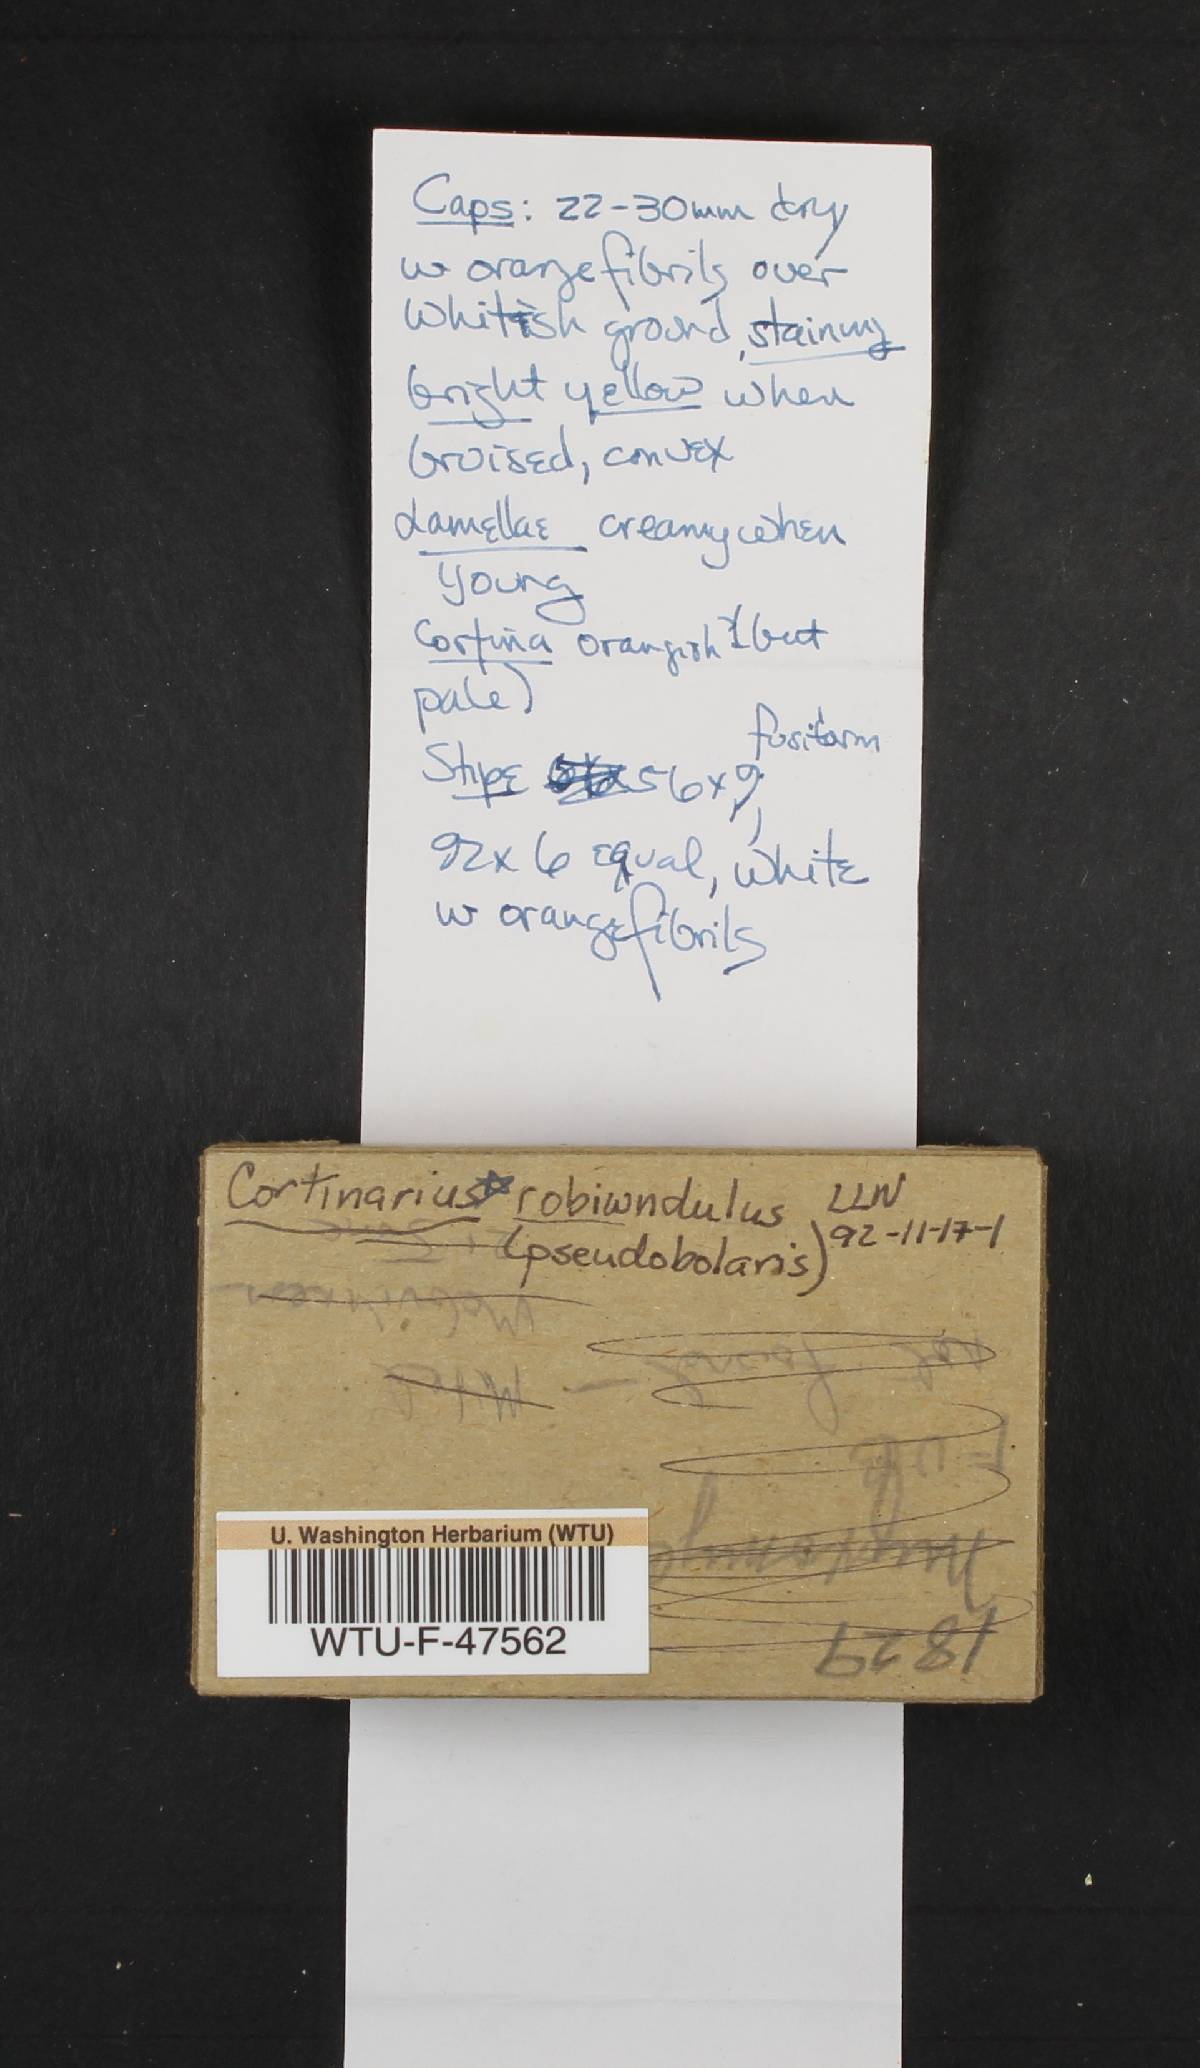 Caps: 22-30mm dry
w orange fibrils over
whitish ground, staining
bright yellow when
bruised, convex
Lamellae creamy when
young
Cortina orangish (but
pale)
fusiform
Stipe 56x9,
92x6 equal, white
w orange fibrils
Cortinarius robiwndulus LLN
(pseudobolaris) 92-11-17-1
U. Washington Herbarium (WTU)
WTU-F-47562
1829